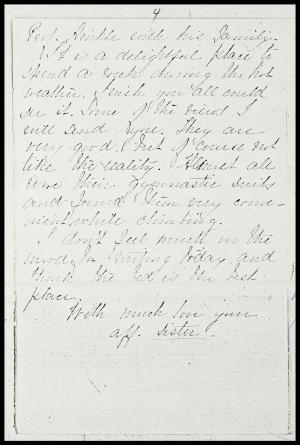 4
Prof. Hinkle with his family.
It is a delightful place to
spend a week during the hot
weather. I wish you all could
see it. Some of the views I
will send you. They are
very good, but of course not
like the reality. Almost all
wore their gymnastic suits
and found them very conve-
nient while climbing.
I don't feel much in the
mood for writing today and
think the bed is the best
place.
With much love your
aff. sister.